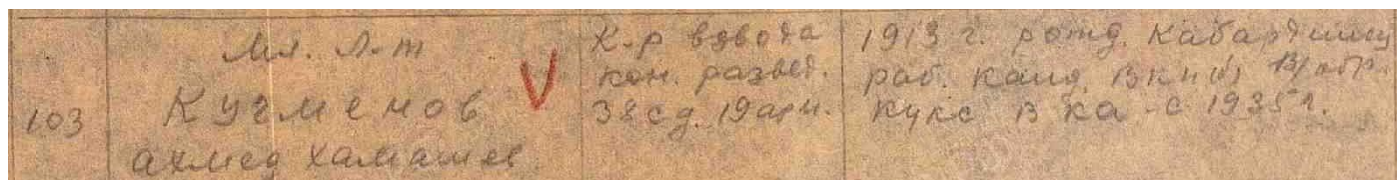 103
Мл. л-т
Кучменов
Ахмед Хамашев
К-р взвода
кон. развед.
38 сд. 19 арм.
1913 г. рожд. Кабардинец
раб. канд. ВКП(б), В/обр.
КУКС В КА - с 1935 г.